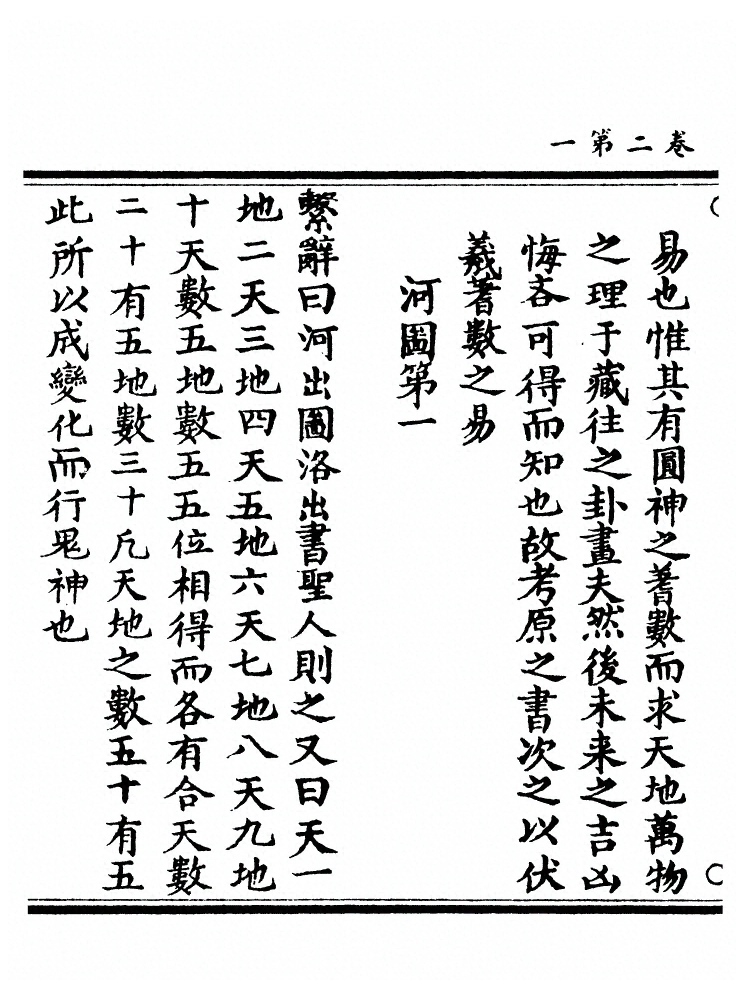 卷二第一
易也惟其有圓神之蓍數而求天地萬物
之理于藏往之卦畫夫然後未来之吉凶
悔吝可得而知也故考原之書次之以伏
羲蓍數之易
河圖第一
繫辭曰河出圖洛出書聖人則之又曰天一
地二天三地四天五地六天七地八天九地
十天數五地數五五位相得而各有合天數
二十有五地數三十凡天地之數五十有五
此所以成變化而行鬼神也